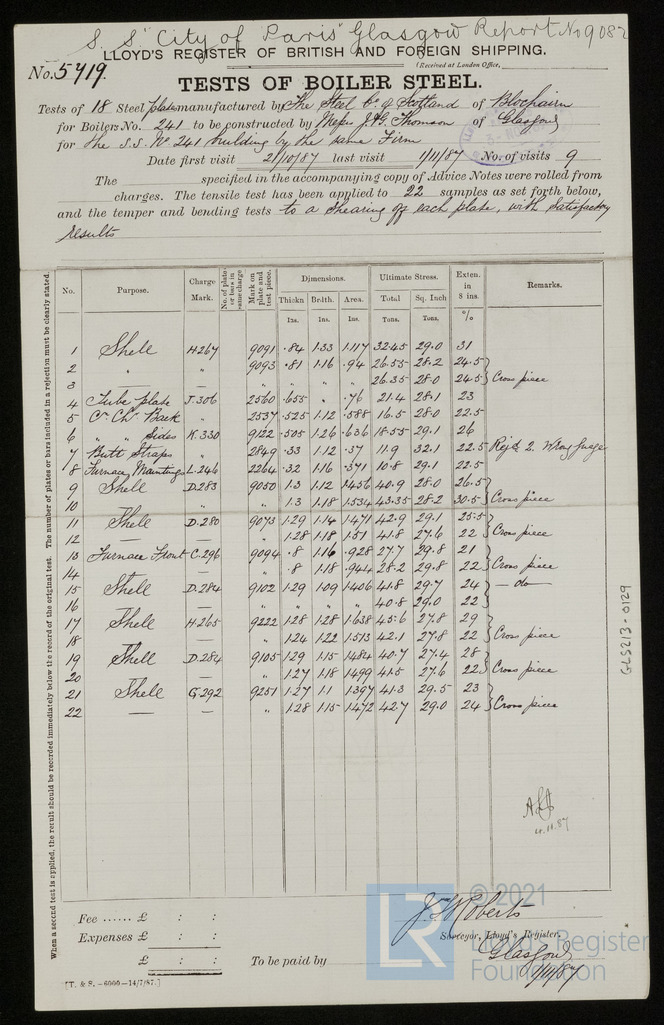 S. S. "City of Paris" Glasgow Report No 9082
LLOYD'S REGISTER OF BRITISH AND FOREIGN SHIPPING.
(Received at London Office,
No. 5419.
TESTS OF BOILER STEEL.
Tests of 18 Steel plates manufactured by The Steel Co. of Scotland of Blochairn
for Boilers No. 241 to be constructed by Messrs J & G. Thomson of Glasgow
for the S.S. No. 241 building by the same Firm
Date first visit 21/10/87 last visit 1/11/87 No. of visits 9
The specified in the accompanying copy of Advice Notes were rolled from
charges. The tensile test has been applied to 22 samples as set forth below,
and the temper and bending tests to a shearing of each plate, with satisfactory
results
No. Purpose. Charge Mark. No. of plates or bars in same charge Mark on plate and test piece. Dimensions. Ultimate Stress. Exten. in 8 ins. Remarks.
Thickn Br.dth. Area. Total Sq. Inch
Ins. Ins. Ins. Tons. Tons. %
1 Shell H.267 9091 .84 1.33 1.117 32.45 29.0 31
2 " " 9093 .81 1.16 .94 26.55 28.2 24.5
3 — — " " " " 26.35 28.0 24.5 Cross piece
4 Tube plate J.306 2560 .655 " .76 21.4 28.1 23
5 Cn. Chr. Back " 2537 .525 1.12 .588 16.5 28.0 22.5
6 " " Sides K.330 9122 .505 1.26 .636 18.55 29.1 26
7 Butt Straps " 2849 .33 1.12 .37 11.9 32.1 22.5 Rejd 2. Wrong Gauge
8 Furnace Mountings L.246 2264 .32 1.16 .371 10.8 29.1 22.5
9 Shell D.283 9050 1.3 1.12 1.456 40.9 28.0 26.5
10 — " " 1.3 1.18 1.534 43.35 28.2 30.5 Cross piece
11 Shell D.280 9073 1.29 1.14 1.471 42.9 29.1 25.5
12 — — " 1.28 1.18 1.51 41.8 27.6 22 Cross piece
13 Furnace Front C.296 9094 .8 1.16 .928 27.7 29.8 21
14 — — " .8 1.18 .944 28.2 29.8 22 Cross piece
15 Shell D.284 9102 1.29 1.09 1.406 41.8 29.7 24 — do —
16 — — " " " " 40.8 29.0 22
17 Shell H.265 9222 1.28 1.28 1.638 45.6 27.8 29
18 — — " 1.24 1.22 1.513 42.1 27.8 22 Cross piece
19 Shell D.284 9105 1.29 1.15 1.484 40.7 27.4 28
20 — — " 1.27 1.18 1.499 41.5 27.6 22 Cross piece
21 Shell G.292 9251 1.27 1.1 1.397 41.3 29.5 23
22 — — " 1.28 1.15 1.472 42.7 29.0 24 Cross piece
When a second test is applied, the result should be recorded immediately below the record of the original test. The number of plates or bars included in a rejection must be clearly stated.
11.11.87
© 2021
LR Lloyd's Register
Foundation
Fee ...... £ : :
Expenses £ : :
£ : :
J. S. Roberts
Surveyor, Lloyd's Register.
To be paid by
Glasgow
[T. & S. —6000—14/7/87.]